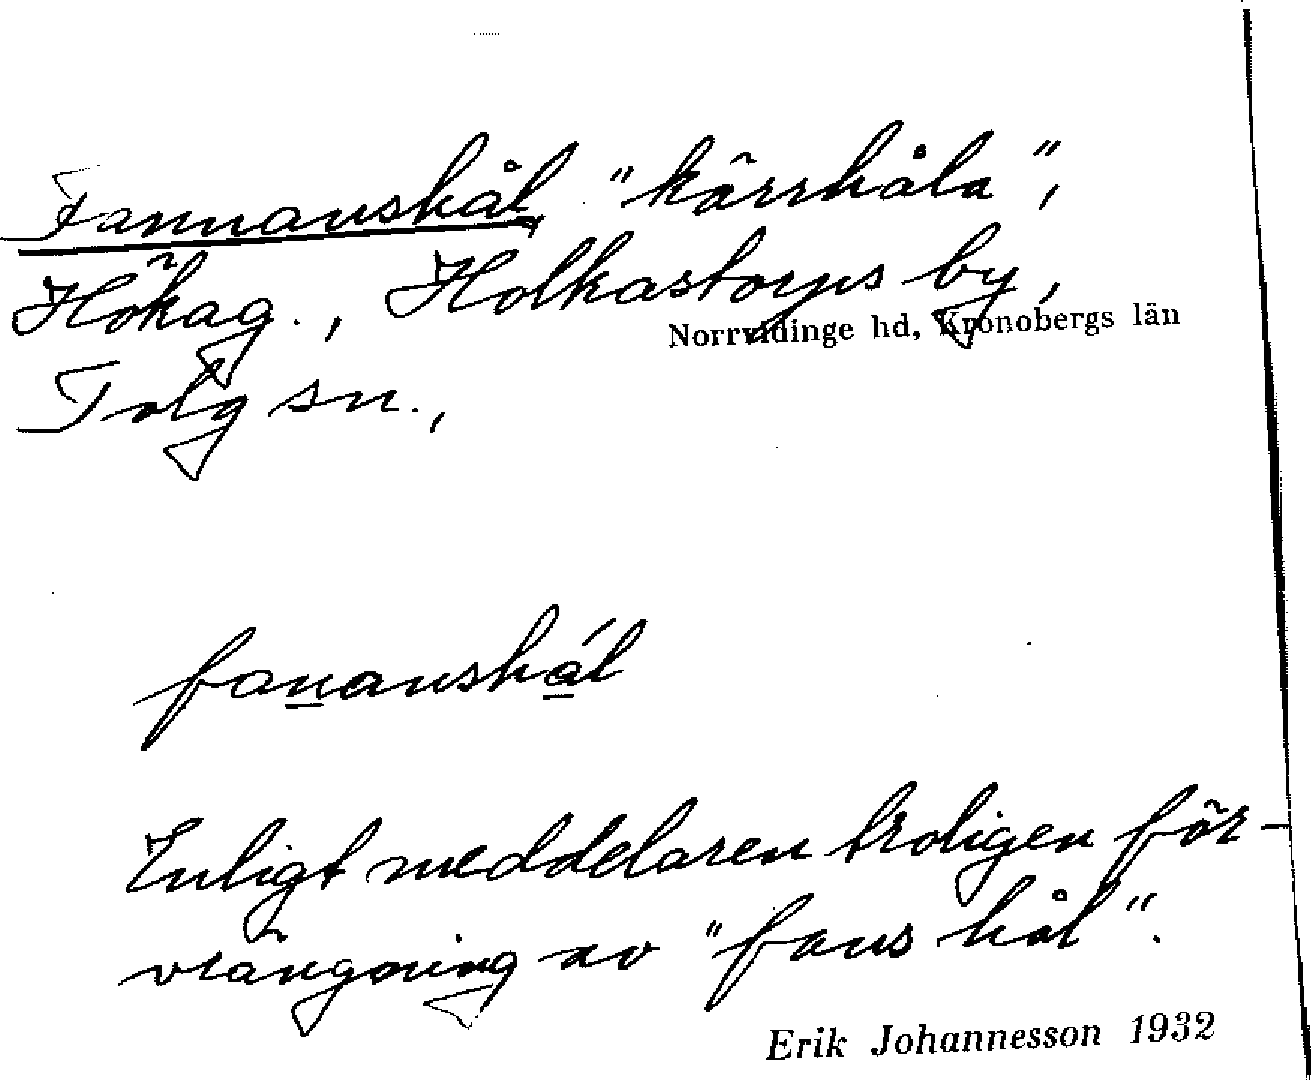 Fannanshål, "kärrhåla",
Hökag., Holkastorps by,
Norrvidinge hd, Kronobergs län
Tolg sn.,
fananshål
Enligt meddelaren troligen för-
vrängning av "fans hål".
Erik Johannesson 1932